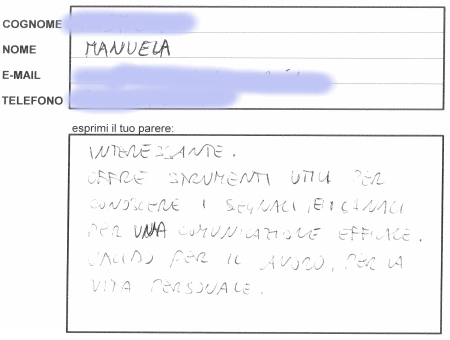 COGNOME
NOME MANUELA
E-MAIL
TELEFONO
esprimi il tuo parere:
INTERESSANTE.
OFFRE STRUMENTI UTILI PER
CONOSCERE I SEGNALI, E I CANALI
PER UNA COMUNICAZIONE EFFICACE.
VALIDO PER IL LAVORO, PER LA
VITA PERSONALE.